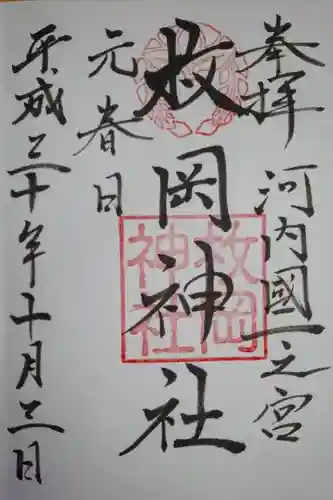 奉拝
河内國一之宮
枚岡神社
枚岡
神社
元春日
平成三十年十月三日